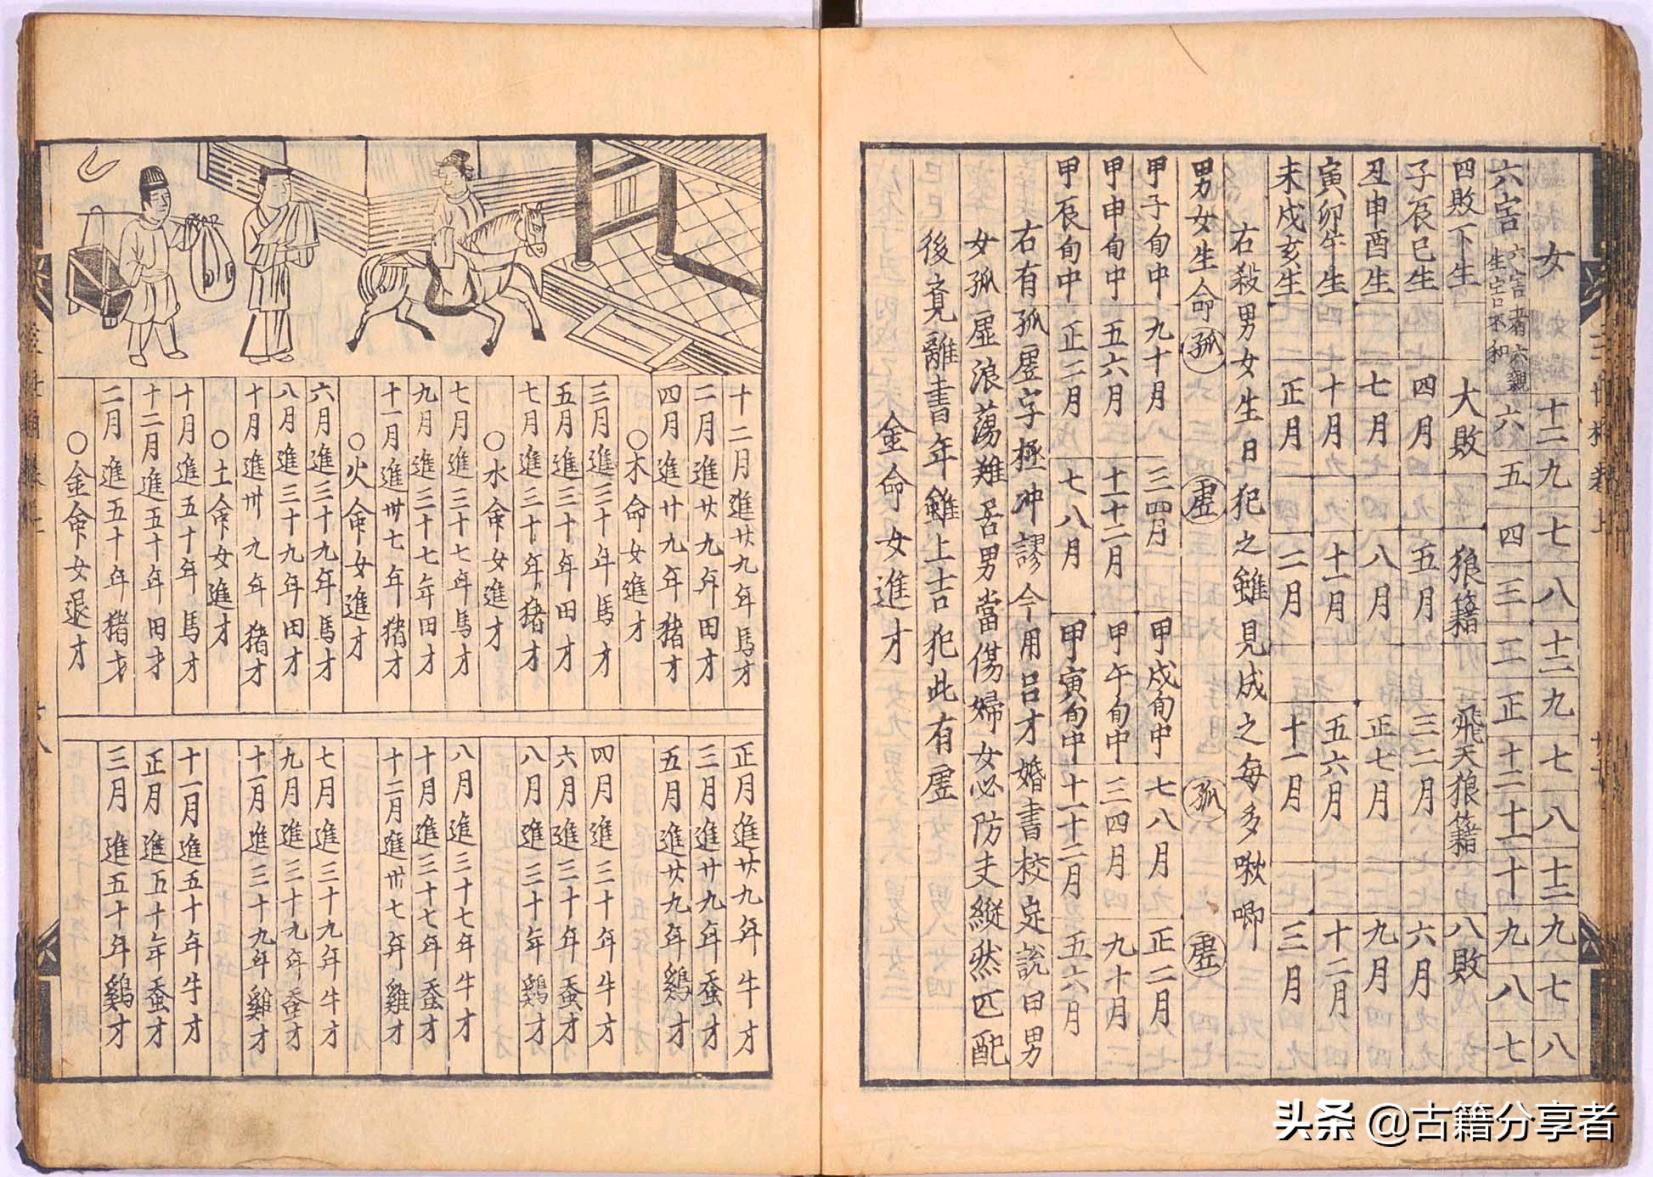 女 十二 九 七 八 十二 九 七 八 十二 九 七 八
六害 六害者六親 生害不和 六 五 四 三 二 正 十二 十一 十 九 八 七
四敗下生 大敗 狼籍 飛天狼籍 八敗
子辰巳生 四月 五月 三二月 六月
丑申酉生 七月 八月 正七月 九月
寅卯午生 十月 十一月 五六月 十二月
未戍亥生 正月 二月 十一月 三月
右殺男女生日犯之雖見成之每多啾唧
男女生命 孤 虛 孤 虛
甲子旬中 九十月 三四月 甲戍旬中 七八月 正二月
甲申旬中 五六月 十一十二月 甲午旬中 三四月 九十月
甲辰旬中 正二月 七八月 甲寅旬中 十一十二月 五六月
右有孤虛字極冲謬今用呂才婚書校定說曰男
女孤虛浪蕩難苦男當傷婦女必防丈縱然匹配
後竟離書年雖上吉犯此有虛
金命女進才
十二月進廿九年馬才 正月進廿九年牛才
二月進廿九年田才 三月進廿九年蚕才
四月進廿九年猪才 五月進廿九年鷄才
○木命女進才
三月進三十年馬才 四月進三十年牛才
五月進三十年田才 六月進三十年蚕才
七月進三十年猪才 八月進三十年鷄才
○水命女進才
七月進三十七年馬才 八月進三十七年牛才
九月進三十七年田才 十月進三十七年蚕才
十一月進卅七年猪才 十二月進卅七年雞才
○火命女進才
六月進三十九年馬才 七月進三十九年牛才
八月進三十九年田才 九月進三十九年蚕才
十月進卅九年猪才 十一月進三十九年雞才
○土命女進才
十月進五十年馬才 十一月進五十年牛才
十二月進五十年田才 正月進五十年蚕才
二月進五十年猪才 三月進五十年鷄才
○金命女退才
头条 @古籍分享者